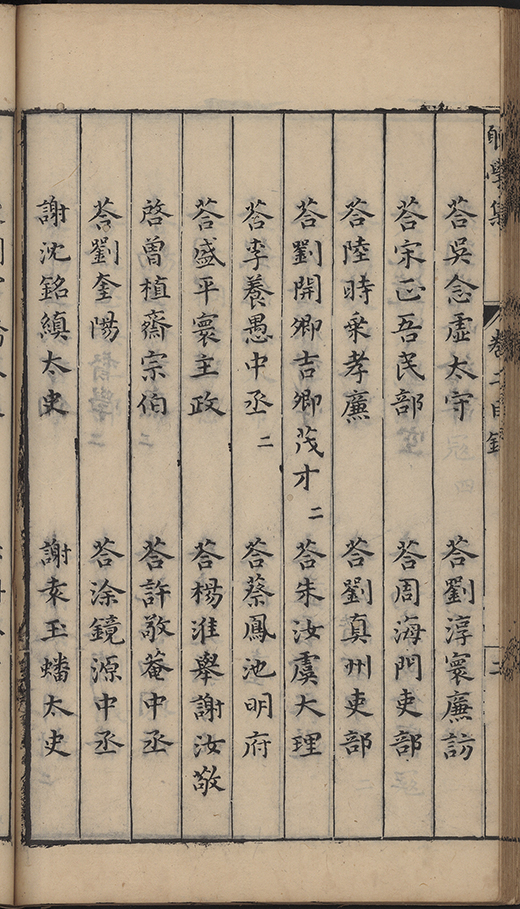 願學集 卷二目錄 二
荅吳念虛太守 荅劉淳寰廉訪
荅宋正吾民部 荅周海門吏部
荅陸時乘孝廉 荅劉真州吏部
荅劉開卿吉卿茂才 二 荅朱汝虞大理
荅李養愚中丞 二 荅蔡鳳池明府
荅盛平寰主政 荅楊淮舉謝汝敬
啓曾植齋宗伯 荅許敬菴中丞
荅劉奎陽 荅涂鏡源中丞
謝沈銘縝太史 謝袁玉蟠太史